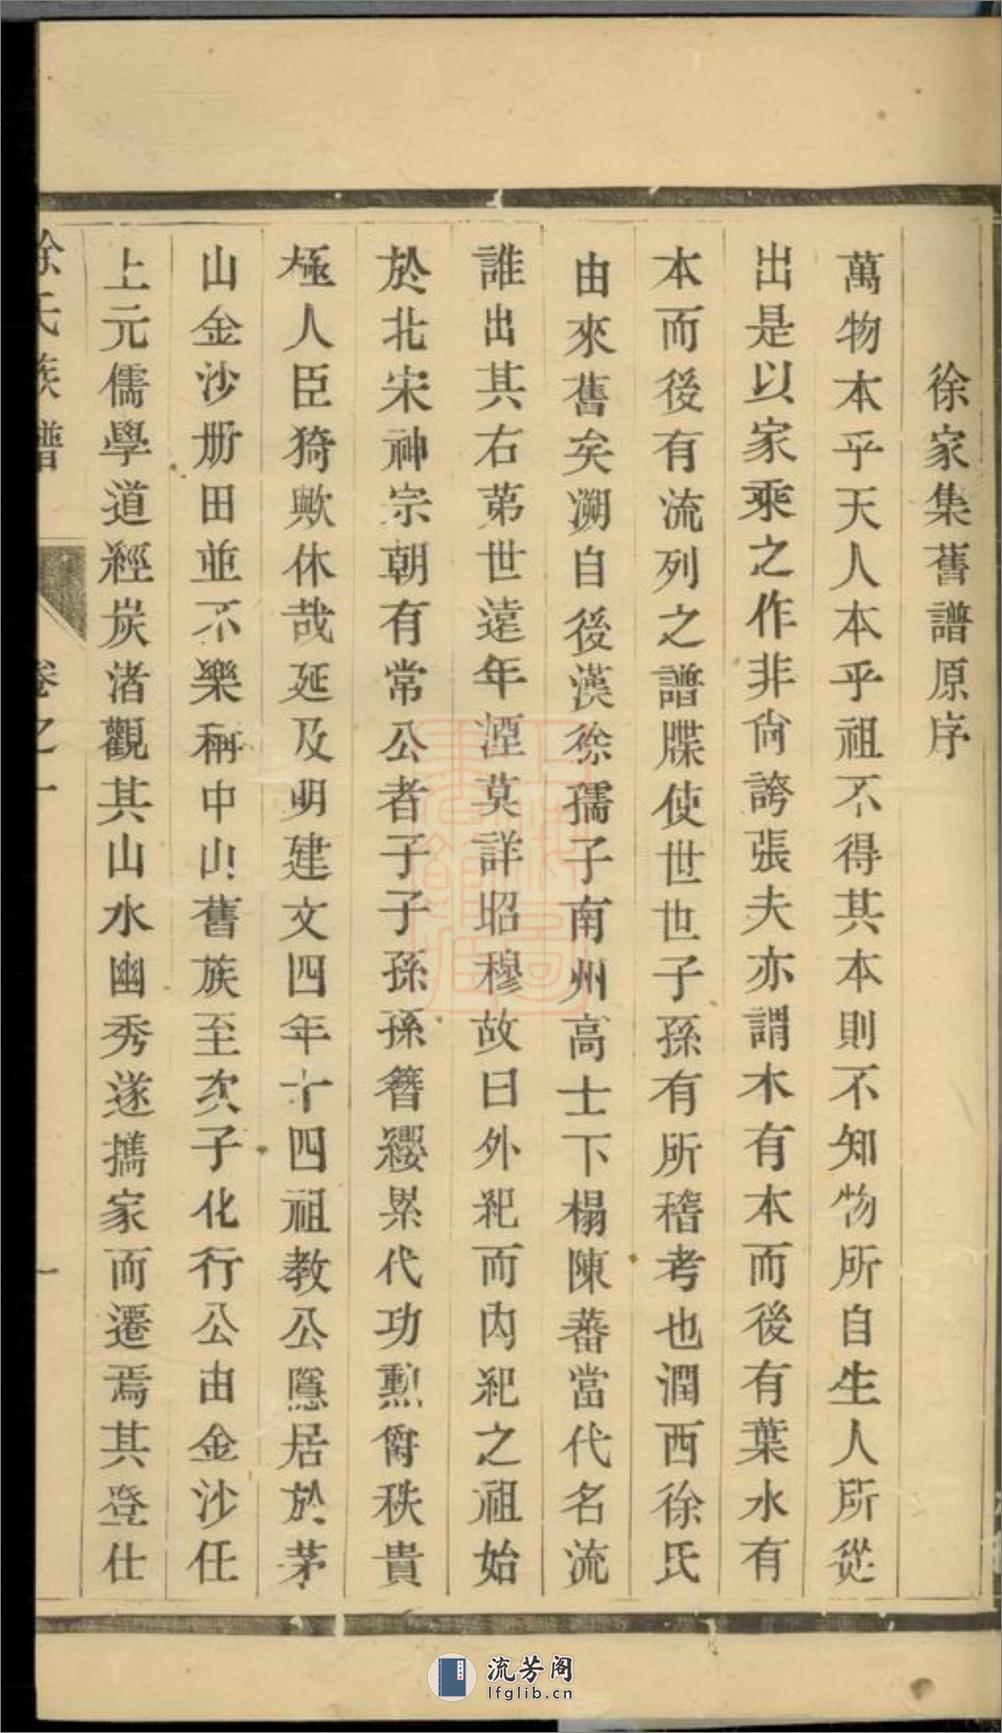 徐家集舊譜原序
萬物本乎天人本乎祖不得其本則不知物所自生人所從
出是以家乘之作非尙誇張夫亦謂木有本而後有葉水有
本而後有流列之譜牒使世世子孫有所稽考也潤西徐氏
由來舊矣溯自後漢徐孺子南州高士下榻陳蕃當代名流
誰出其右第世遠年湮莫詳昭穆故曰外祀而內祀之祖始
於北宋神宗朝有常公者子子孫孫簪纓累代功勲爵秩貴
極人臣猗歟休哉延及明建文四年十四祖教公隱居於茅
山金沙册田並不樂稱中山舊族至次子化行公由金沙任
上元儒學道經炭渚觀其山水幽秀遂攜家而遷焉其登仕
徐氏族譜 卷之一 一
流芳阁
lfglib.cn